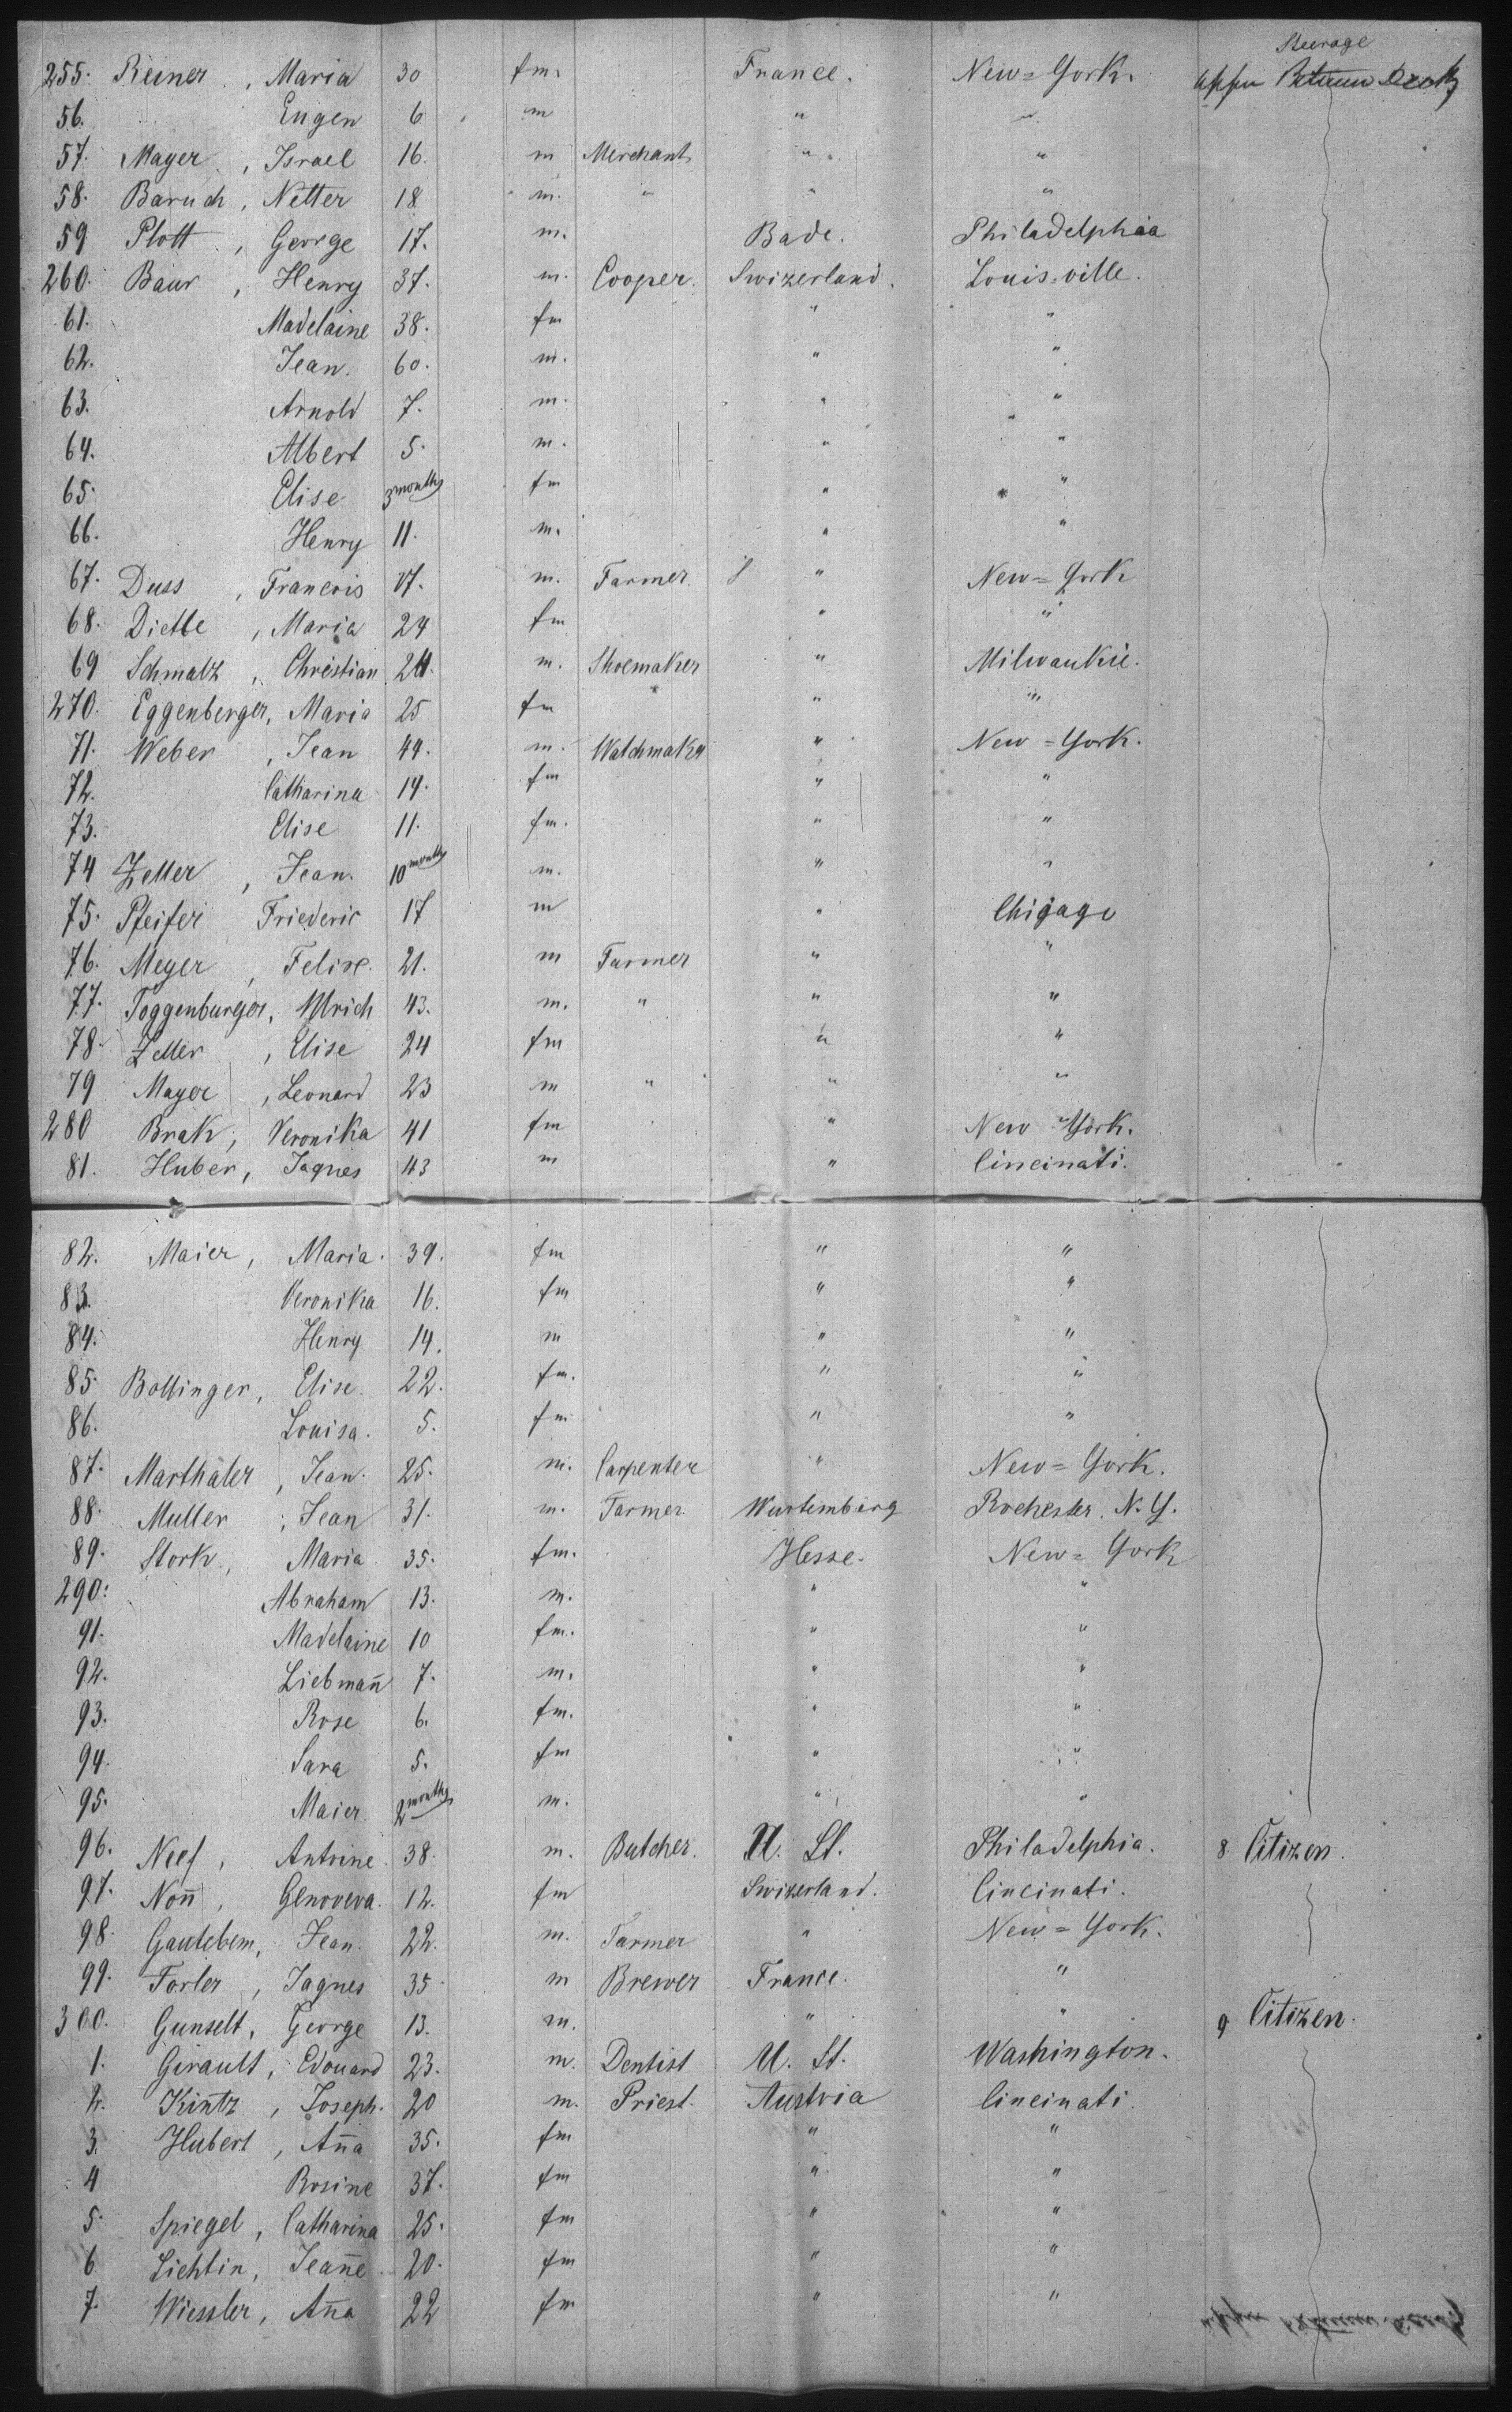 Steerage
255. Reiner, Maria 30 fm. France. New=York. Upper Between Deck
56. Eugen 6 m " "
57. Mayer, Israel 16. m Merchant " "
58. Baruch, Netter 18 m. " " "
59 Plott, George 17. m. Bade. Philadelphia
260. Baur, Henry 37. m. Cooper. Swizerland. Louis=ville.
61. Madelaine 38. fm " "
62. Jean. 60. m. " "
63. Arnold 7. m. " "
64. Albert 5. m. " "
65. Elise 3 months fm " "
66. Henry 11. m. " "
67. Duss, Francois 17. m. Farmer " New=York
68. Dietle, Maria 24 fm " "
69 Schmalz, Christian 24. m. Shoemaker " Milwaukie.
270. Eggenberger, Maria 25 fm " "
71. Weber, Jean 44. m. Watchmaker " New=York.
72. Catharina 14. fm " "
73. Elise 11. fm. " "
74 Zeller, Jean. 10 months m. " "
75. Pfeifer Friederic 17 m " Chigago
76. Meyer, Felise. 21. m Farmer " "
77. Toggenburger, Ulrich 43. m. " " "
78. Zeller, Elise 24 fm " "
79 Mayer, Leonard 23 m " " "
280 Brak, Veronika 41 fm " New York.
81. Huber, Jaques 43 m " Cincinati.
82. Maier, Maria. 39. fm " "
83. Veronika 16. fm " "
84. Henry 14. m " "
85. Bollinger, Elise. 22. fm. " "
86. Louisa. 5. fm " "
87. Marthaler, Jean. 25. m. Carpenter " New=York.
88. Muller, Jean 31. m. Farmer Wurtemberg Rochester. N.Y.
89. Stork, Maria 35. fm. Hesse. New=York
290. Abraham 13. m. " "
91. Madelaine 10 fm. " "
92. Liebmañ 7. m. " "
93. Rose 6. fm. " "
94. Sara 5. fm " "
95. Maier 2 months m. " "
96. Neef, Antoine 38. m. Butcher. U. St. Philadelphia. 8 Citizen.
97. Noñ, Genoveva. 12. fm Swizerland. Cincinati.
98. Gautebem, Jean. 22. m. Farmer " New=York.
99. Forler, Jaques 35 m Brewer France. "
300. Gunselt, George 13. m. " " 9 Citizen.
1. Girault, Edouard 23. m. Dentist U. St. Washington.
2. Kintz, Joseph. 20 m. Priest. Austria Cincinati.
3. Hubert, Aña 35. fm " "
4 Rosine 37. fm " "
5. Spiegel, Catharina 25. fm " "
6 Lichtin, Jeañe 20. fm " "
7. Wiessler, Aña 22 fm " "